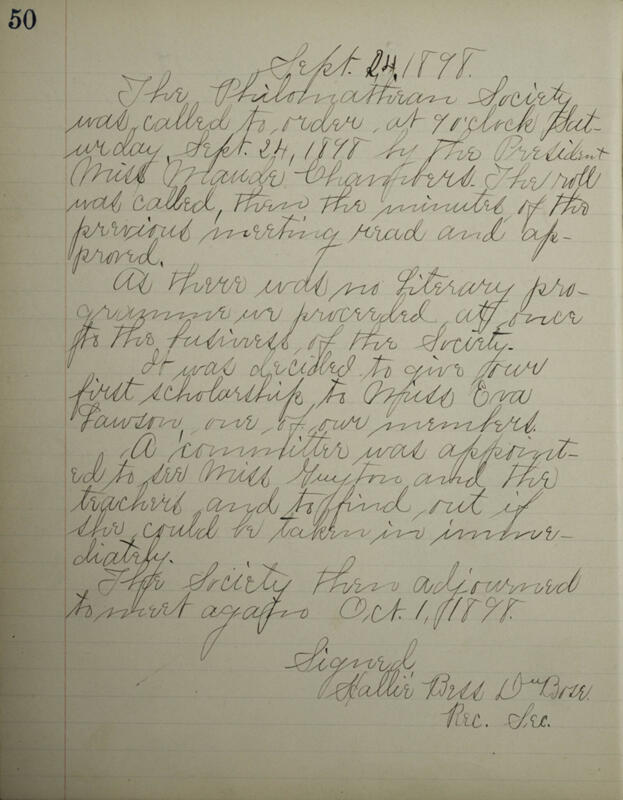 50
Sept. 24, 1898.
The Philomathean Society
was called to order at 9 o'clock Sat-
urday, Sept. 24, 1898 by the President
Miss Maude Chambers. The roll
was called, then the minutes of the
previous meeting read and ap-
proved.
As there was no Literary pro-
gramme we proceeded at once
to the business of the Society.
It was decided to give our
first scholarship to Miss Eva
Lawson, one of our members.
A committee was appoint-
ed to see Miss Guyton and the
teachers and to find out if
she could be taken in imme-
diately.
The Society then adjourned
to meet again Oct. 1, 1898.
Signed,
Hallie Bess DuBose
Rec. Sec.